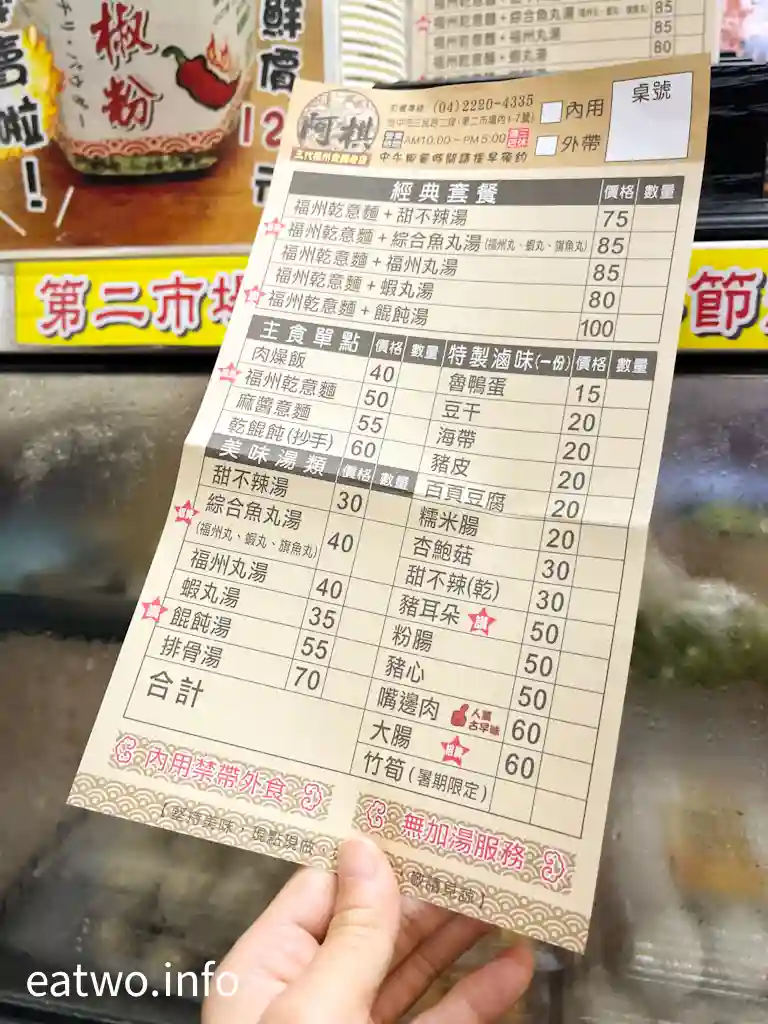 椒粉
チリ・パウダー
鮮
價
12
元
賣
啦
!
福州乾意麵+綜合魚丸湯
85
福州乾意麵+福州丸湯
85
福州乾意麵+蝦丸湯
80
第二市場
節
阿棋
三代福州意麵老店
訂餐專線 (04)2220-4335
台中市三民路二段(第二市場內1-7號)
營業時間 AM10:00~PM5:00
內用
外帶
桌號
經典套餐 價格 數量
福州乾意麵+甜不辣湯 75
福州乾意麵+綜合魚丸湯(福州丸、蝦丸、旗魚丸) 85
福州乾意麵+福州丸湯 85
福州乾意麵+蝦丸湯 80
福州乾意麵+餛飩湯 100
主食單點 價格 數量
肉燥飯 40
福州乾意麵 50
麻醬意麵 55
乾餛飩(抄手) 60
美味湯類 價格 數量
甜不辣湯 30
綜合魚丸湯 40
(福州丸、蝦丸、旗魚丸)
福州丸湯 40
蝦丸湯 35
餛飩湯 55
排骨湯 70
合計
特製滷味(一份) 價格 數量
魯鴨蛋 15
豆干 20
海帶 20
豬皮 20
百頁豆腐 20
糯米腸 20
杏鮑菇 30
甜不辣(乾) 30
豬耳朵 50
粉腸 50
豬心 50
嘴邊肉 人氣古早味 60
大腸 60
竹筍(暑期限定)
內用禁帶外食
無加湯服務
【堅持美味,現點現做,
敬請見諒】
eatwo.info